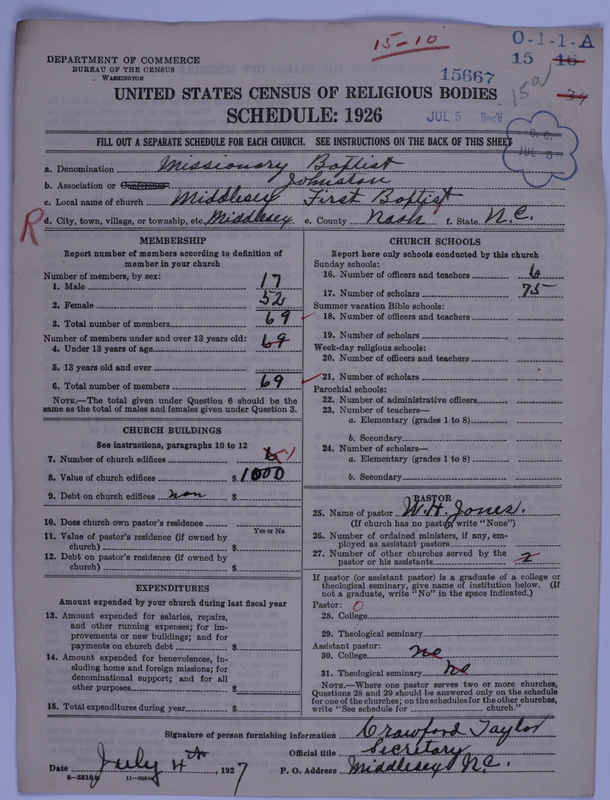 15-10
0-1-1-A
DEPARTMENT OF COMMERCE
BUREAU OF THE CENSUS
WASHINGTON
15667
15 16
15a
34
UNITED STATES CENSUS OF RELIGIOUS BODIES
SCHEDULE: 1926
JUL 5 Rec'd
C. C.
JUL 5
FILL OUT A SEPARATE SCHEDULE FOR EACH CHURCH. SEE INSTRUCTIONS ON THE BACK OF THIS SHEET
a. Denomination Missionary Baptist
b. Association or Conference Johnston
c. Local name of church Middlesex First Baptist
R
d. City, town, village, or township, etc. Middlesex e. County Nash f. State N.C.
MEMBERSHIP
Report number of members according to definition of
member in your church
Number of members, by sex:
1. Male 17
2. Female 52
3. Total number of members 69
Number of members under and over 13 years old:
4. Under 13 years of age 69
5. 13 years old and over
6. Total number of members 69
NOTE.—The total given under Question 6 should be the
same as the total of males and females given under Question 3.
CHURCH BUILDINGS
See instructions, paragraphs 10 to 12
7. Number of church edifices 1
8. Value of church edifices $1000
9. Debt on church edifices non $
10. Does church own pastor's residence
Yes or No
11. Value of pastor's residence (if owned by
church) $
12. Debt on pastor's residence (if owned by
church) $
EXPENDITURES
Amount expended by your church during last fiscal year
13. Amount expended for salaries, repairs,
and other running expenses; for im-
provements or new buildings; and for
payments on church debt $
14. Amount expended for benevolences, in-
cluding home and foreign missions; for
denominational support; and for all
other purposes $
15. Total expenditures during year $
CHURCH SCHOOLS
Report here only schools conducted by this church
Sunday schools:
16. Number of officers and teachers 6
17. Number of scholars 75
Summer vacation Bible schools:
18. Number of officers and teachers
19. Number of scholars
Week-day religious schools:
20. Number of officers and teachers
21. Number of scholars
Parochial schools:
22. Number of administrative officers
23. Number of teachers—
a. Elementary (grades 1 to 8)
b. Secondary
24. Number of scholars—
a. Elementary (grades 1 to 8)
b. Secondary
PASTOR
25. Name of pastor W. H. Jones.
(If church has no pastor, write "None")
26. Number of ordained ministers, if any, em-
ployed as assistant pastors
27. Number of other churches served by the
pastor or his assistants 2
If pastor (or assistant pastor) is a graduate of a college or
theological seminary, give name of institution below. (If
not a graduate, write "No" in the space indicated.)
Pastor: 0
28. College
29. Theological seminary
Assistant pastor:
30. College no
31. Theological seminary no
NOTE.—Where one pastor serves two or more churches,
Questions 28 and 29 should be answered only on the schedule
for one of the churches; on the schedules for the other churches,
write "See schedule for church."
Signature of person furnishing information Crawford Taylor
Official title Secretary
Date July 4th, 1927 P. O. Address Middlesex N.C.